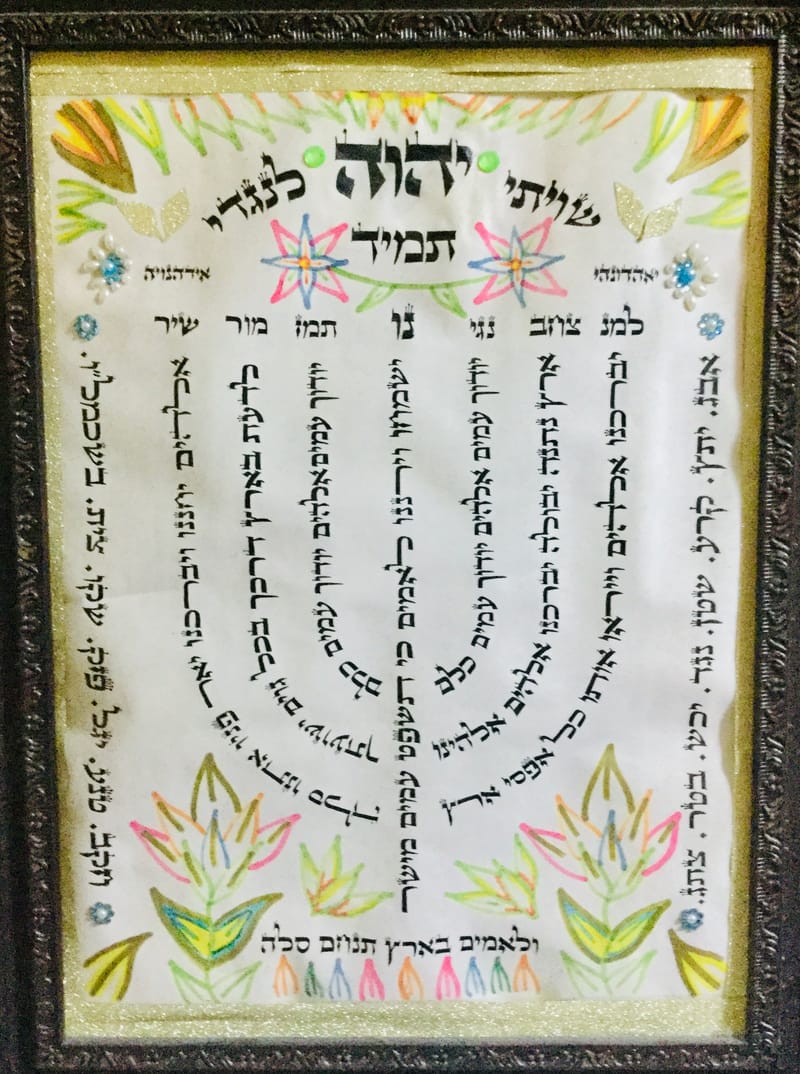 שויתי יהוה לנגדי
תמיד
יאהדונהי אידהנויה
למנ צחב נגי נו תמז מור שיר
יברכנו אלהים וייראו אותו כל אפסי ארץ
ארץ נתנה יבולה יברכנו אלהים אלהינו
יודוך עמים אלהים יודוך עמים כלם
ישמחו וירננו לאמים כי תשפט עמים מישור
יודוך עמים אלהים יודוך עמים כלם
לדעת בארץ דרכך בכל גוים ישועתך
אלהים יחננו ויברכנו יאר פניו אתנו סלה
ולאמים בארץ תנחם סלה
אבג. יתץ. קרע. שטן. נגד. יכש. בטר. צתג.
חקב. טנע. יגל. פזק. שקו. צית. בשכמל"ו.